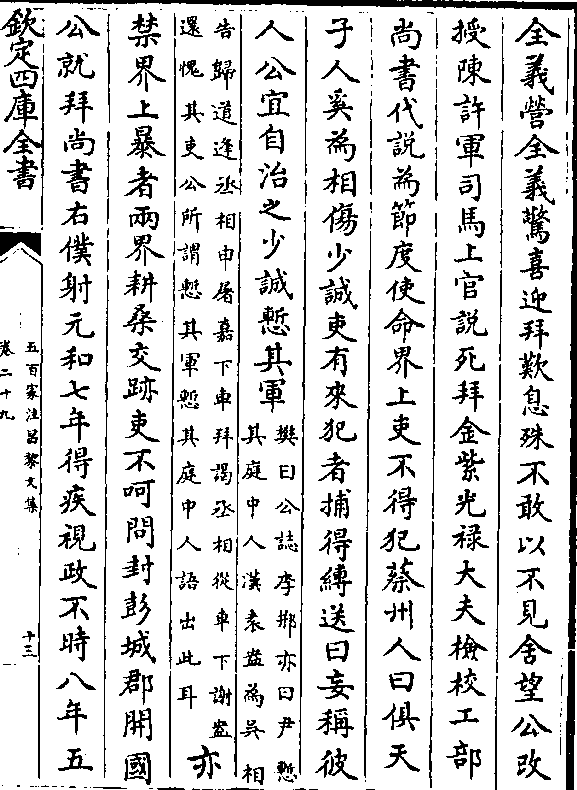 全義營全義驚喜迎拜歎息殊不敢以不見舍望公改
授陳許軍司馬上官説死拜金紫光禄大夫檢校工部
尚書代説為節度使命界上吏不得犯蔡州人曰俱天
子人奚為相傷少誠吏有來犯者捕得縛送曰妄稱彼
人公宜自治之少誠慙其軍
樊曰公誌李鄘亦曰尹慙
其庭中人漢袁盎為吳相
告歸道逢丞相申屠嘉下車拜謁丞相從車下謝盎
還愧其吏公所謂慙其軍慙其庭中人語出此耳
亦
禁界上暴者兩界耕桑交跡吏不呵問封彭城郡開國
公就拜尚書右僕射元和七年得疾視政不時八年五
欽定四庫全書
五百家注昌黎文集
卷二十九
十三